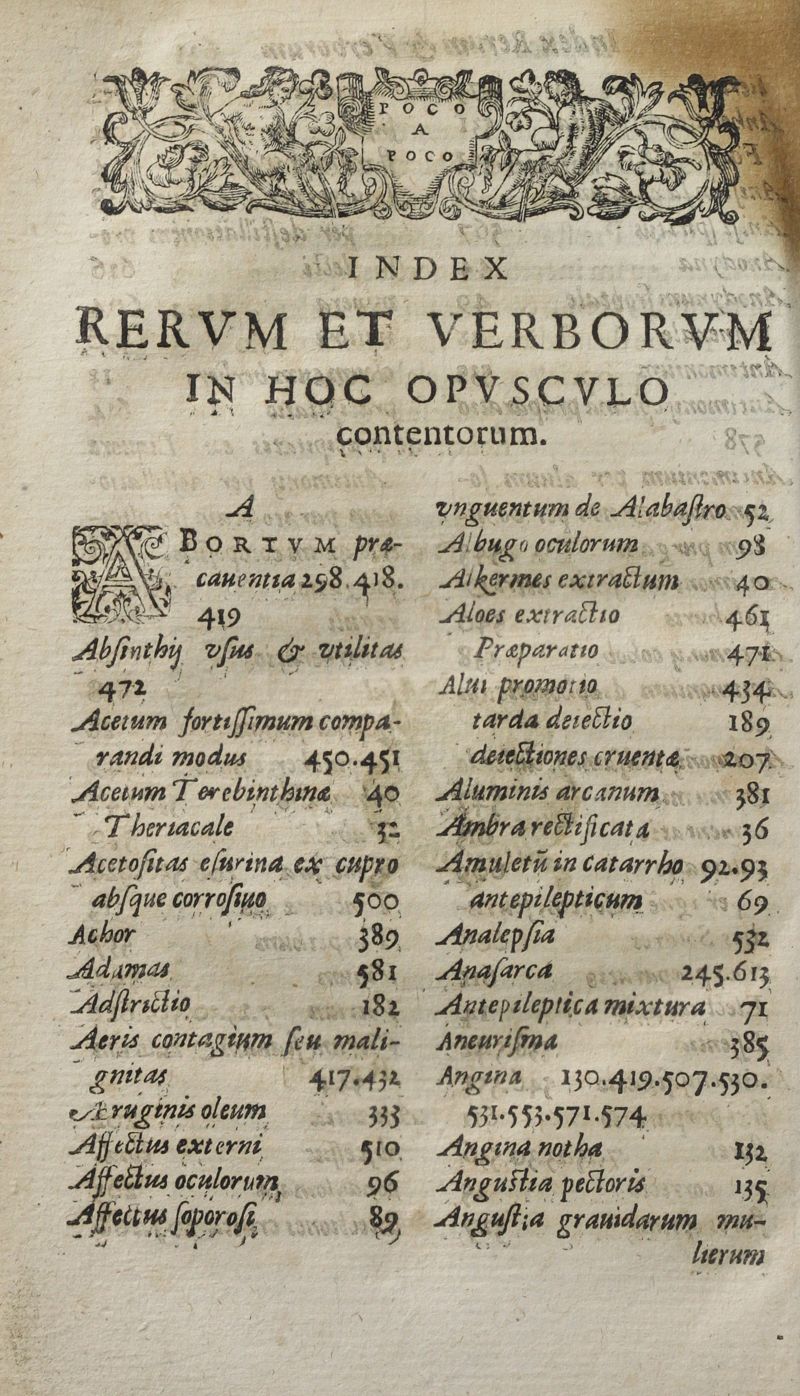 POCO
A
POCO
INDEX
RERVM ET VERBORVM
IN HOC OPVSCVLO
contentorum.
A
ABORTVM præ-
cauentia 298.418.
419
Abſinthij vſus & vtilitas
472
Acetum fortiſſimum compa-
randi modus 450.451
Acetum Terebinthinæ 40
Theriacale 32
Acetoſitas eſurina ex cupro
abſque corroſiuo 500
Achor 389
Adamas 581
Adſtrictio 182
Aeris contagium ſeu mali-
gnitas 417.432
Æruginis oleum 333
Affectus externi 510
Affectus oculorum 96
Affectus ſoporoſi 89
vnguentum de Alabaſtro 52
Albugo oculorum 98
Alkermes extractum 40
Aloes extractio 461
Præparatio 471
Alui promotio 434
tarda deiectio 189
deiectiones cruentæ 207
Aluminis arcanum 381
Ambra rectificata 36
Amuletū in catarrho 92.93
antepilepticum 69
Analepſia 532
Anaſarca 245.613
Antepileptica mixtura 71
Aneuriſma 385
Angina 130.419.507.530.
531.553.571.574
Angina notha 132
Anguſtia pectoris 135
Anguſtia grauidarum mu-
lierum